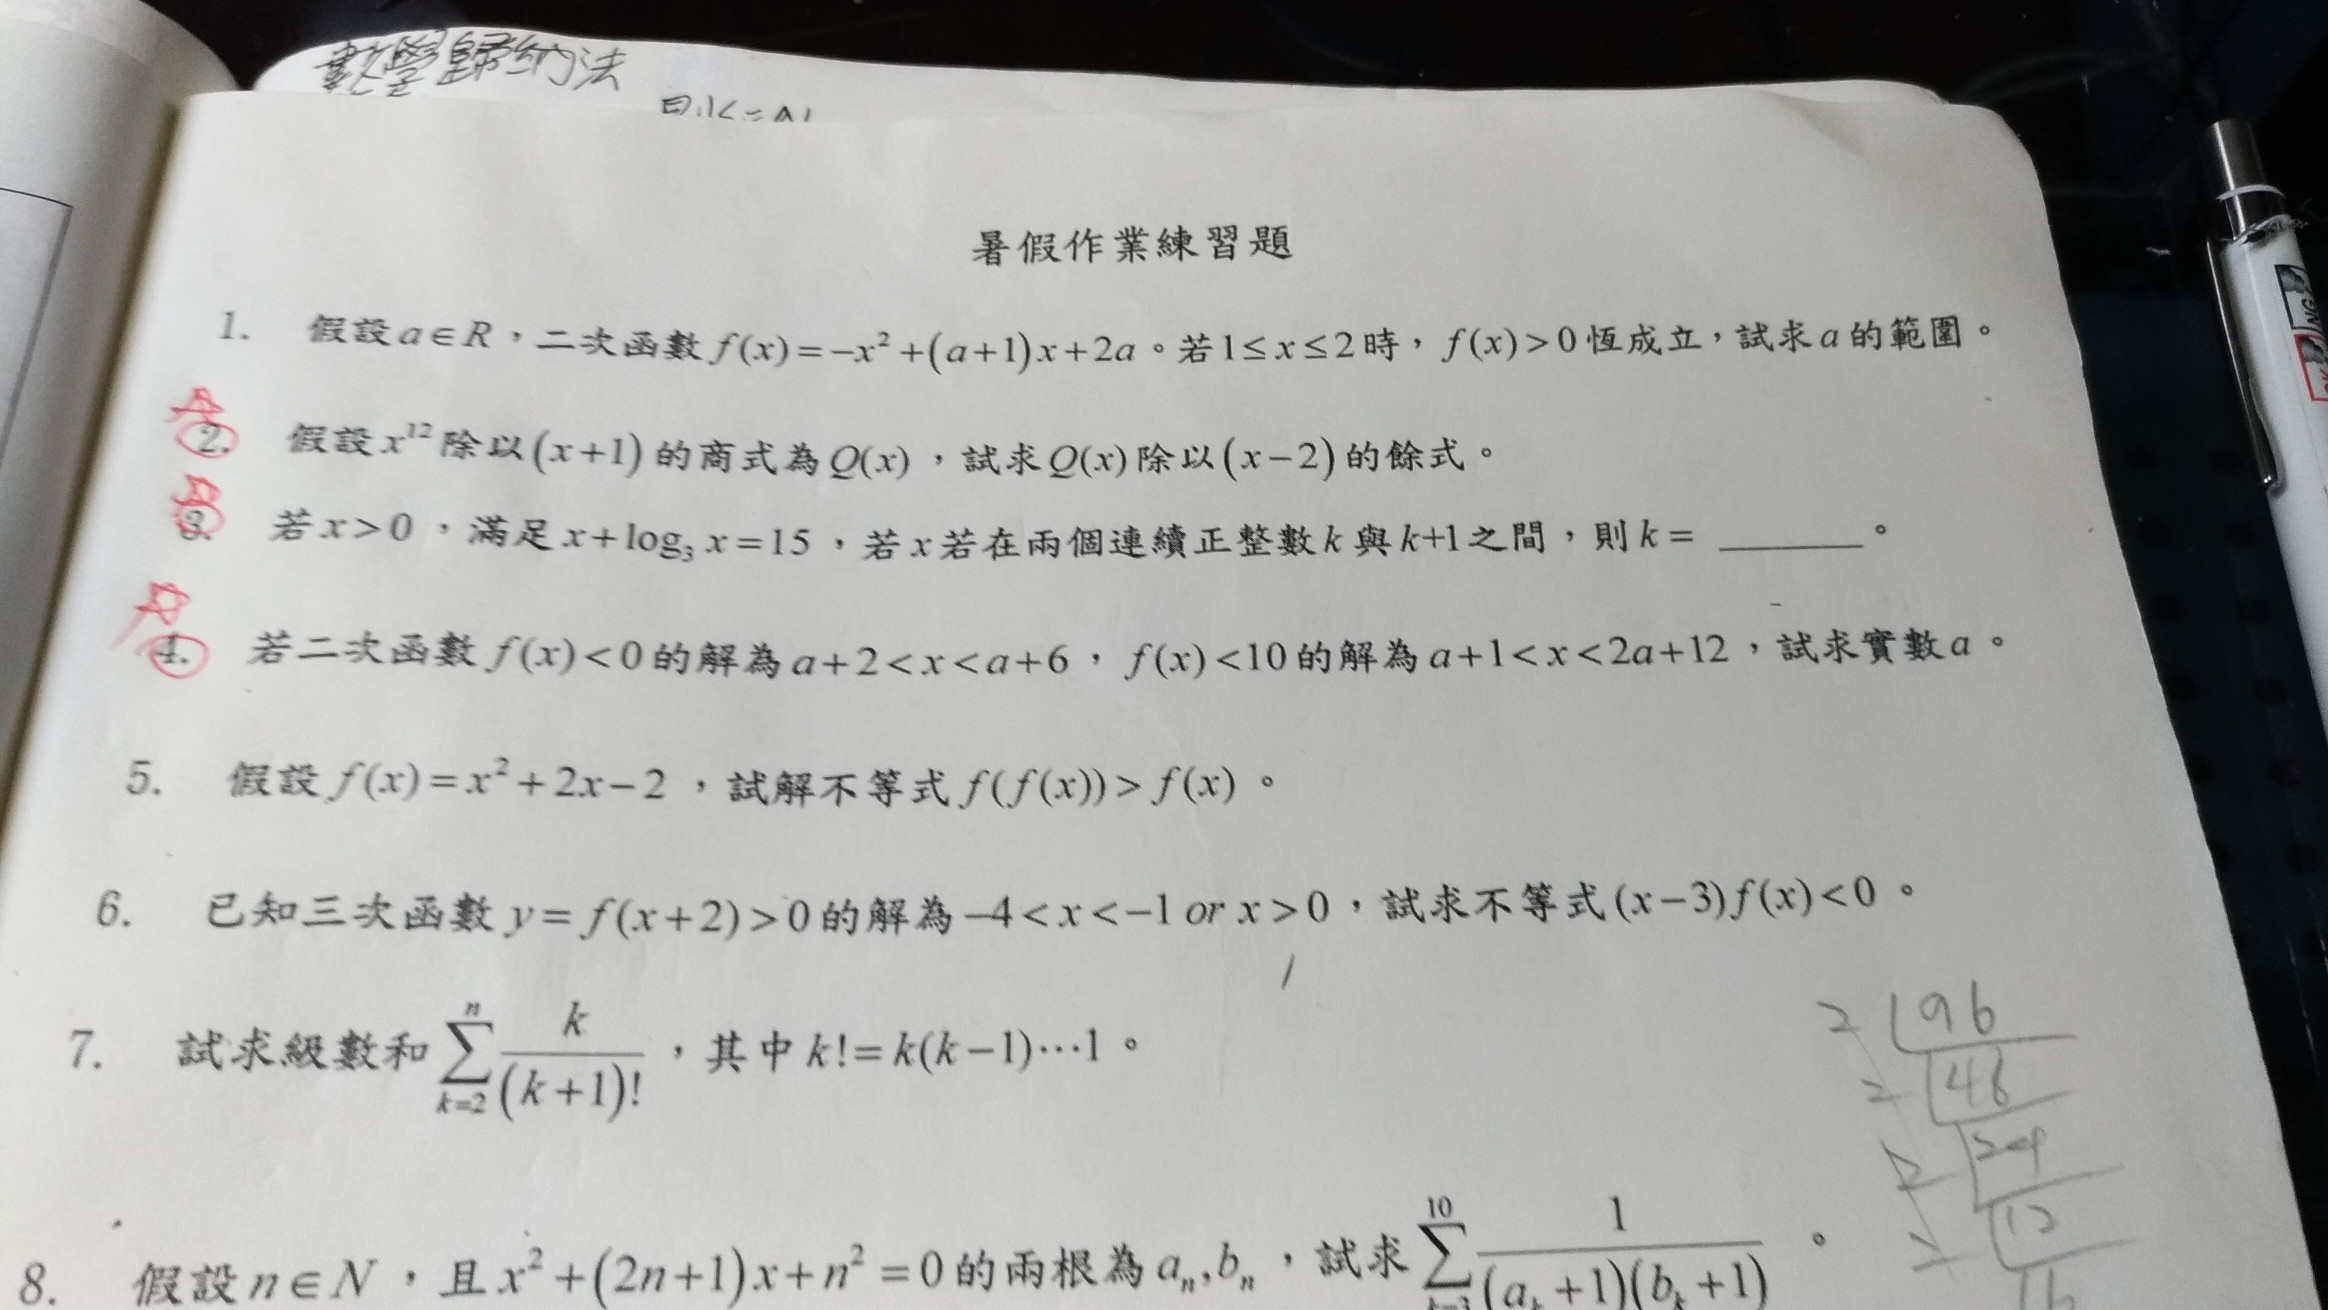 數學歸納法
暑假作業練習題
1. 假設a∈R，二次函數f(x)=−x²+(a+1)x+2a。若1≤x≤2時，f(x)>0恆成立，試求a的範圍。
2. 假設x¹²除以(x+1)的商式為Q(x)，試求Q(x)除以(x−2)的餘式。
3. 若x>0，滿足x+log₃ x=15，若x若在兩個連續正整數k與k+1之間，則k= ______。
4. 若二次函數f(x)<0的解為a+2<x<a+6，f(x)<10的解為a+1<x<2a+12，試求實數a。
5. 假設f(x)=x²+2x−2，試解不等式f(f(x))>f(x)。
6. 已知三次函數y=f(x+2)>0的解為−4<x<−1 or x>0，試求不等式(x−3)f(x)<0。
7. 試求級數和∑_{k=2}^{n} k/(k+1)!，其中k!=k(k−1)⋯1。
8. 假設n∈N，且x²+(2n+1)x+n²=0的兩根為aₙ,bₙ，試求∑_{k=3}^{10} 1/((aₖ+1)(bₖ+1))。
2 96
2 48
2 24
2 12